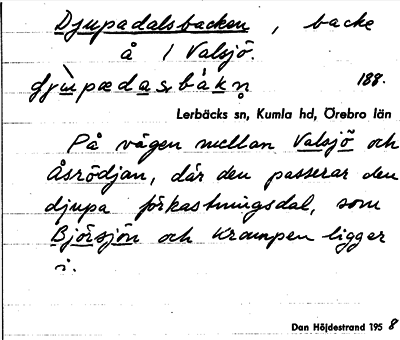 Djupadalsbacken, backe
å 1 Valsjö.
188.
Lerbäcks sn, Kumla hd, Örebro län
På vägen mellan Valsjö och
Åsrödjan, där den passerar den
djupa förkastningsdal, som
Björsjön och Krampen ligger
i.
Dan Höjdestrand 1958